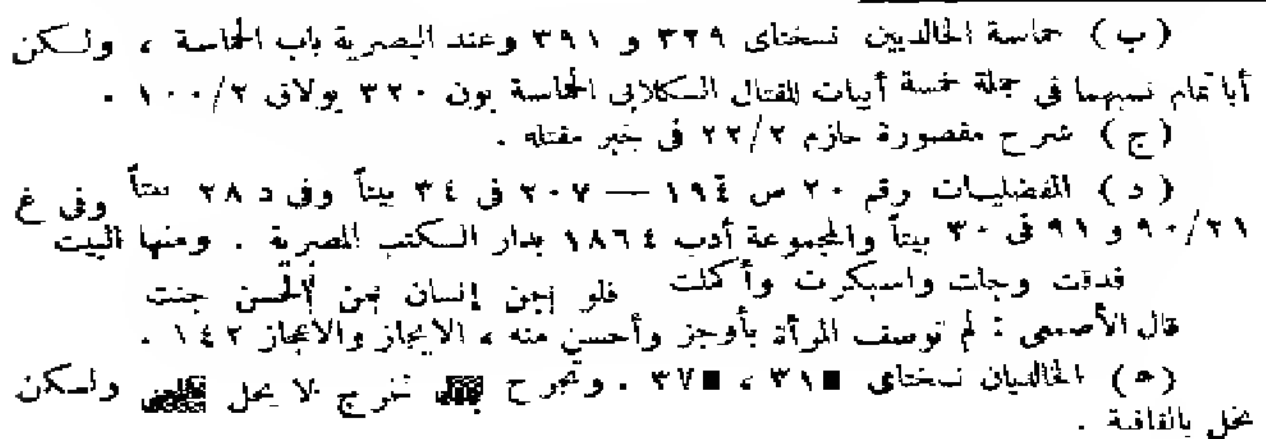 (ب) حماسة الخالديين نسختاى ٣٢٩ و ٣٩١ وعند البصرية باب الحماسة ، ولكن
أبا تمام نسبهما فى جملة خمسة أبيات للقتال الكلابى الحماسة بون ٣٢٠ بولاق ١٠٠/٢ .
(ج) شرح مقصورة حازم ٢٢/٢ فى خبر مقتله .
(د) المفضليات رقم ٢٠ ص ١٩٤ — ٢٠٧ فى ٣٤ بيتاً وفى د ٢٨ بيتاً وفى غ
٩٠/٢١ و ٩١ فى ٣٠ بيتاً والمجموعة أدب ١٨٦٤ بدار الكتب المصرية . ومنها البيت
فدقت وجلت واسبكرت وأكملت فلو يجن إنسان من الحسن جنت
قال الأصمعى : لم توصف المرأة بأوجز وأحسن منه ، الايجاز والاعجاز ١٤٢ .
(ه) الخالديان نسختاى ٣١ ، ٣٧ . وتجرح تخرج لا يخل ولكن
يخل بالقافية .